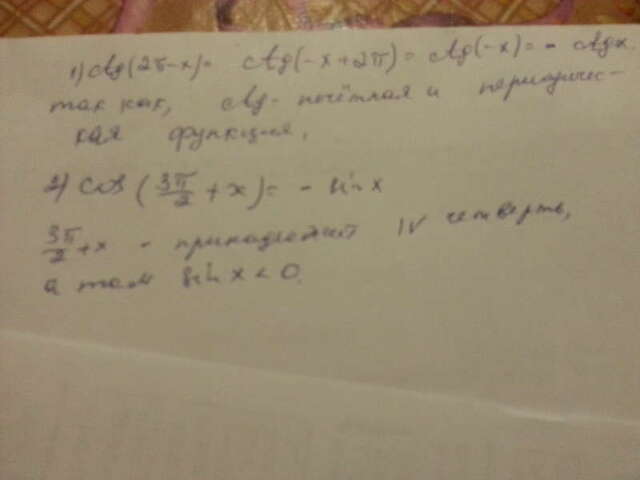 1) ctg(2π-x) = ctg(-x+2π) = ctg(-x) = - ctgx.
так как, ctg - нечётная и периодичес-
кая функция.
2) cos (3π/2 + x) = - sin x
3π/2 + x - принадлежит IV четверть,
а там sin x < 0.